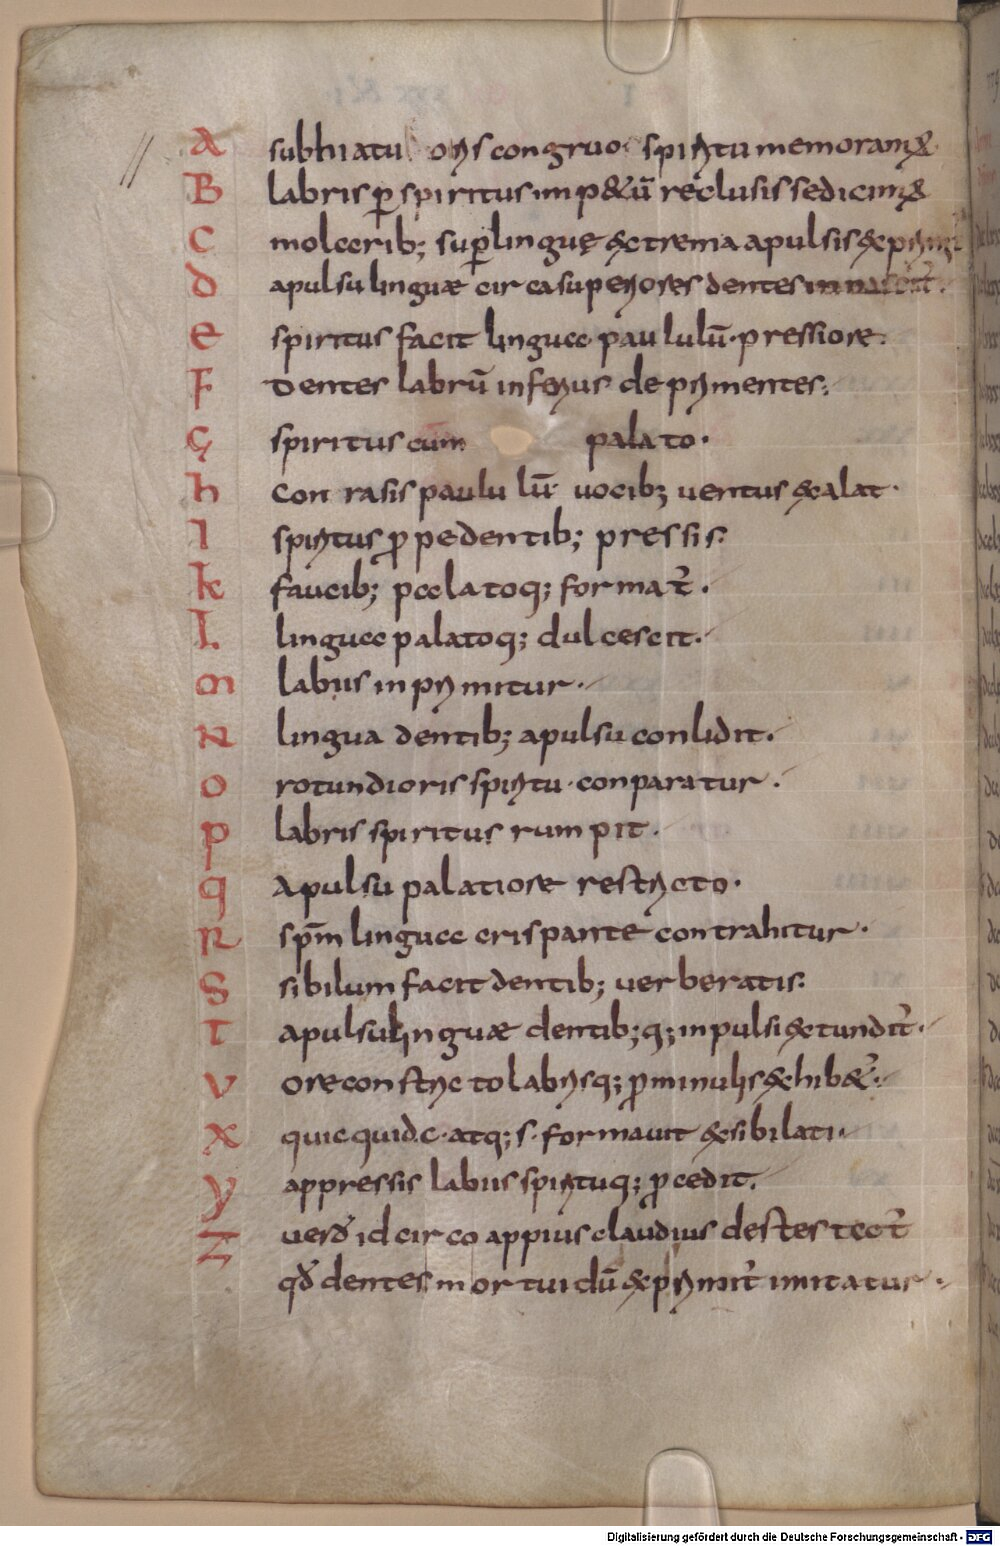 A subhiatu oris congruo spiritu memoram&
B labris p̄ spiritus imp&ū reclusis edicim&
C molarib; sup̄linguę &trema apulsis &prim̄
D apulsu linguæ circa superiores dentes innascit̄.
E spiritus facit linguae paululū· pressiore.
F Dentes labrū inferius deprimentes.
G spiritus cum palato·
H Con rasis paululū vocib; ventus &alat·
I spiritus ꝓpe dentib; pressis.
K faucib; palatoq; format̄.
L linguae palatoq; dulcescit.
M labiis inprimitur·
N lingua dentib; apulsu conlidit.
O rotundioris spiritu· conparatur.
P labris spiritus rumpit.
Q Apulsu palati ore restricto·
R sp̄m linguae crispante contrahitur·
S sibilum facit dentib; verberatis.
T apulsu linguæ dentib;q; inpulsi &tundit̄.
V ore constricto labrisq; ꝓminulis &hib&̄.
X quicquid.c.atq;.s.formavit &sibilati.
Y appressis labiis spirituq; ꝓcedit.
Z vero idcirco appius claudius destestat̄
qđ dentes mortui dū &primit̄ imitatur.
Digitalisierung gefördert durch die Deutsche Forschungsgemeinschaft - DFG